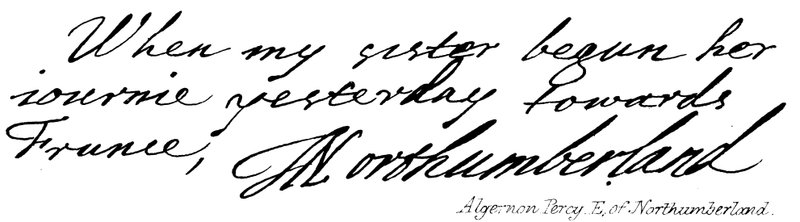 When my sister begun her
iournie yesterday towards
France, ANorthumberland
Algernon Percy. E. of Northumberland.